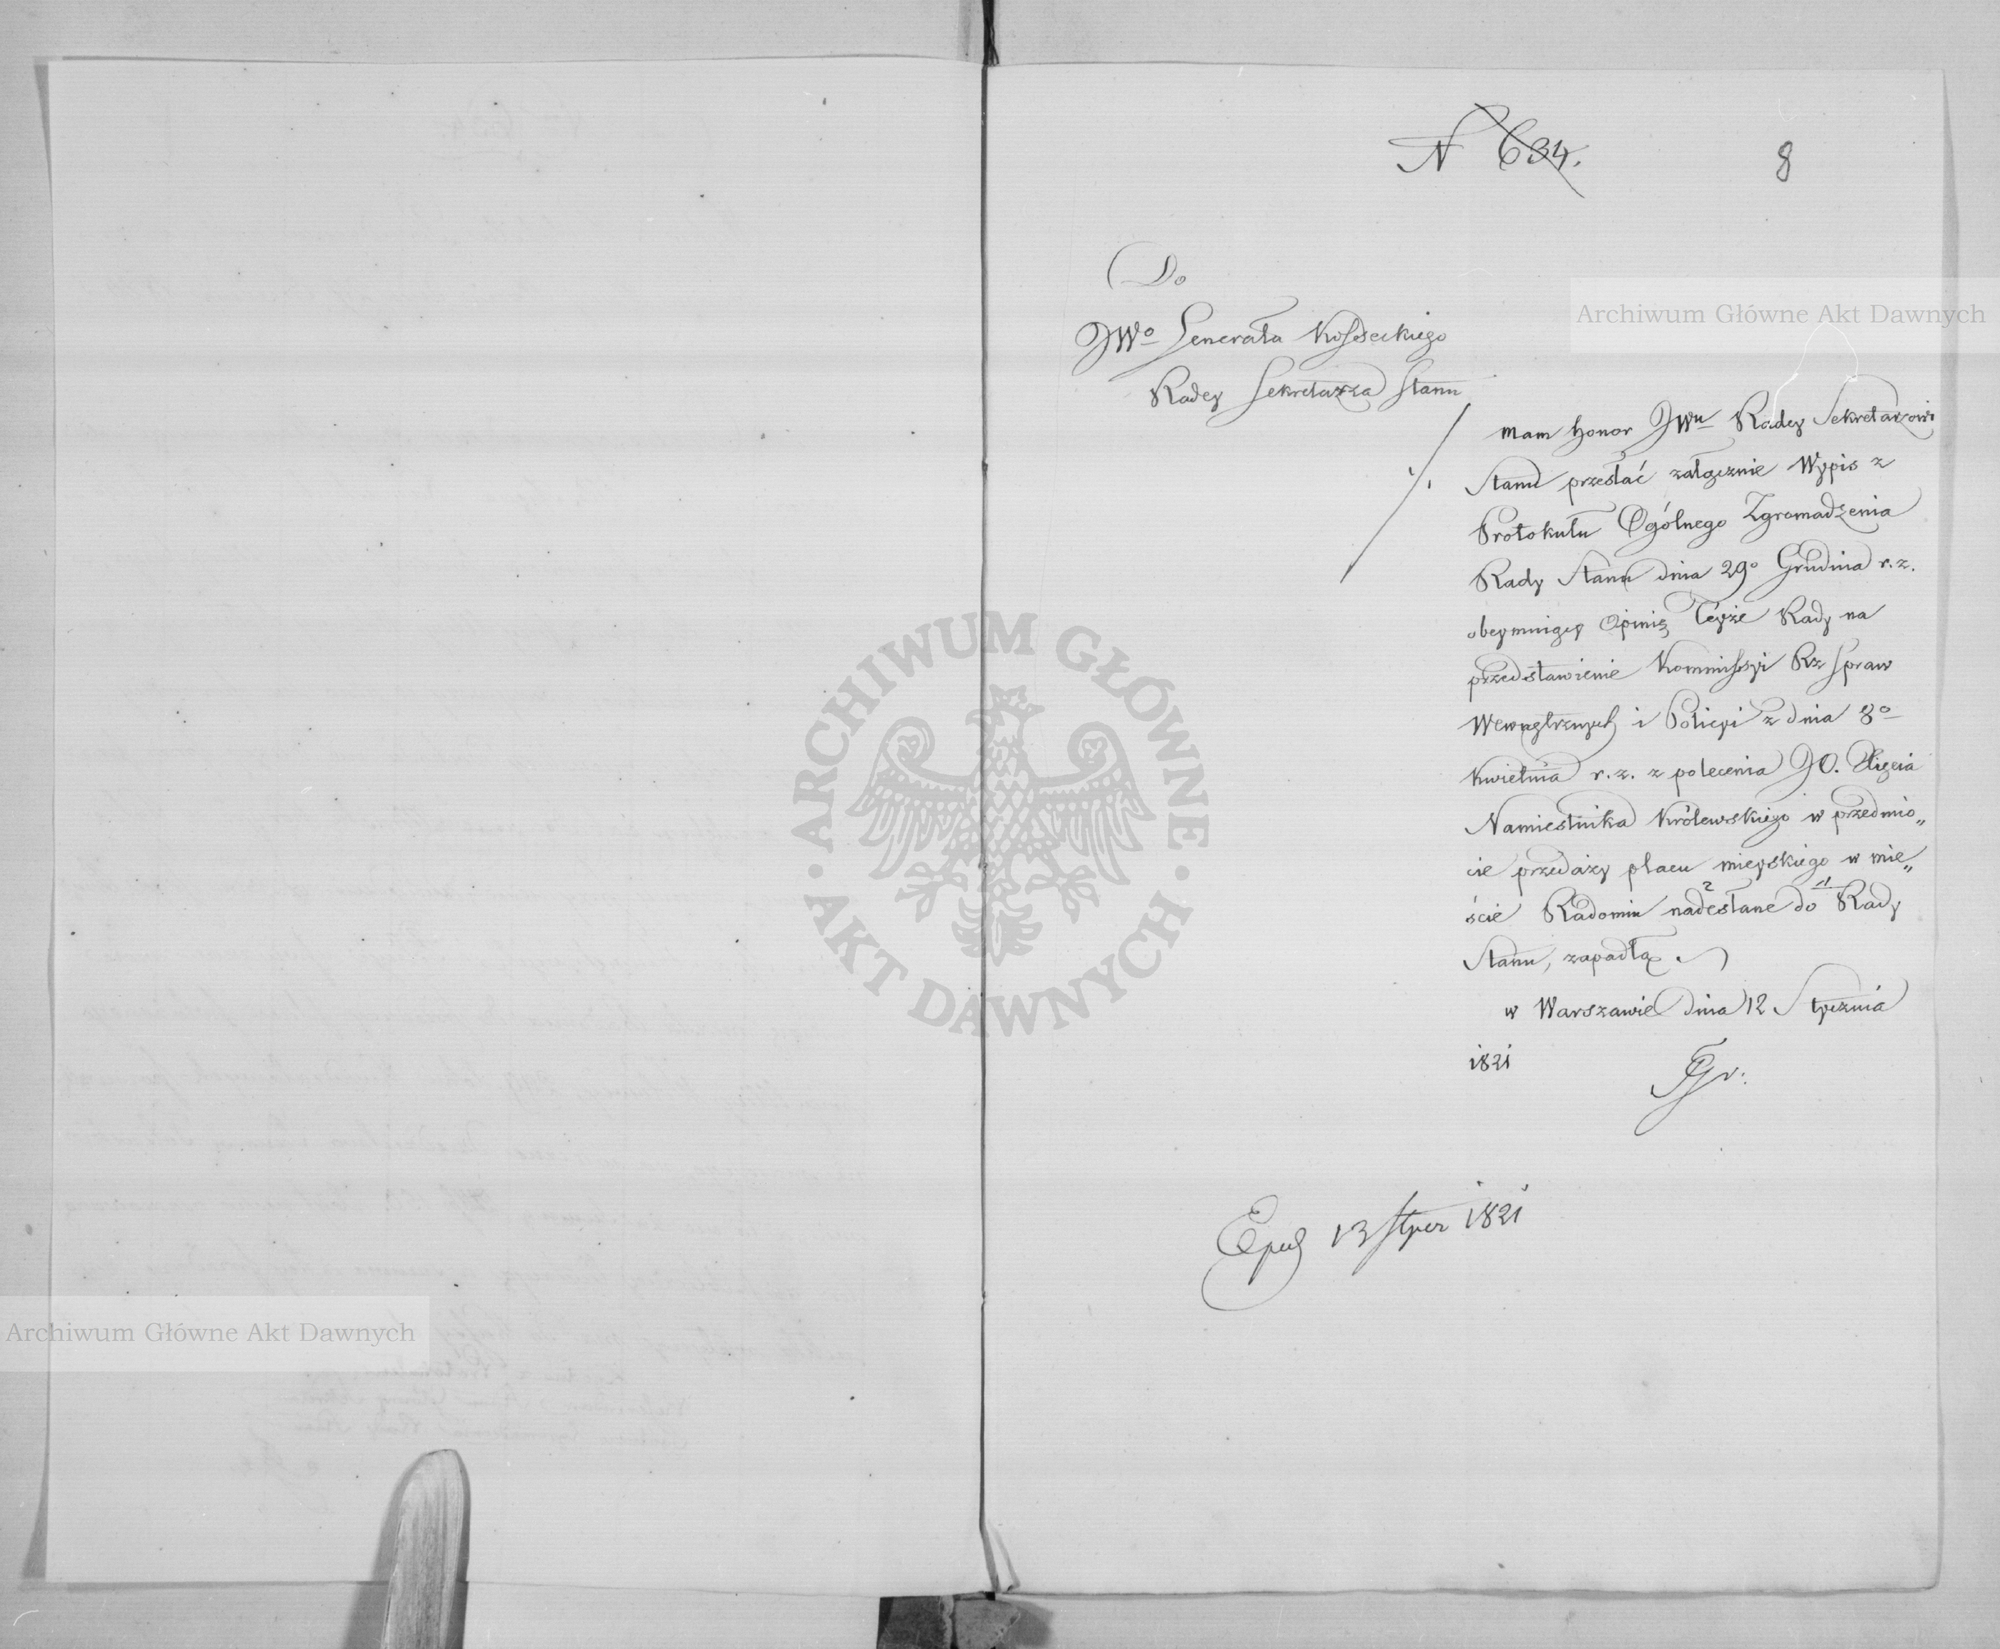 N 634.
8
Do
JWo Generała Kosseckiego
Radcy Sekretarza Stanu
Archiwum Główne Akt Dawnych
Mam honor JWu Radcy Sekretarzowi
Stanu przesłać załącznie Wypis z
Protokułu Ogólnego Zgromadzenia
Rady Stanu dnia 29o Grudnia r. z.
obeymuiący Opinię Teyże Rady na
przedstawienie Kommissyi Rz Spraw
Wewnętrznych i Policyi z dnia 8o
Kwietnia r. z. z polecenia JO. Xięcia
Namiestnika Królewskiego w przedmio„
cie przedaży placu mieyskiego w mie„
ście Radomiu nadesłane do Rady
Stanu, zapadłą.
w Warszawie dnia 12 Stycznia
1821
13 Stycz 1821
ARCHIWUM GŁÓWNE
AKT DAWNYCH
Archiwum Główne Akt Dawnych